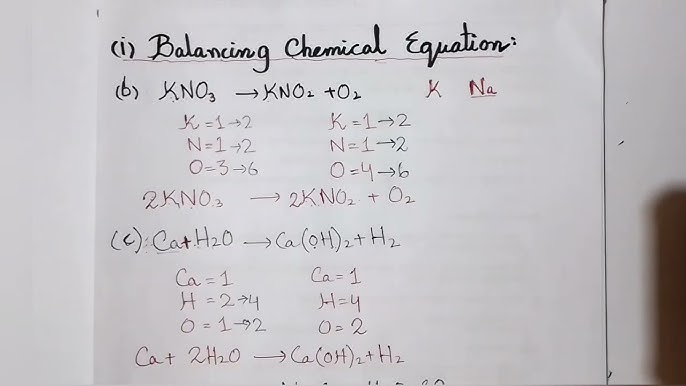 (i) Balancing Chemical Equation:
(b) KNO₃ → KNO₂ + O₂ K Na
K = 1 → 2 K = 1 → 2
N = 1 → 2 N = 1 → 2
O = 3 → 6 O = 4 → 6
2KNO₃ → 2KNO₂ + O₂
(c) Ca + H₂O → Ca(OH)₂ + H₂
Ca = 1 Ca = 1
H = 2 → 4 H = 4
O = 1 → 2 O = 2
Ca + 2H₂O → Ca(OH)₂ + H₂